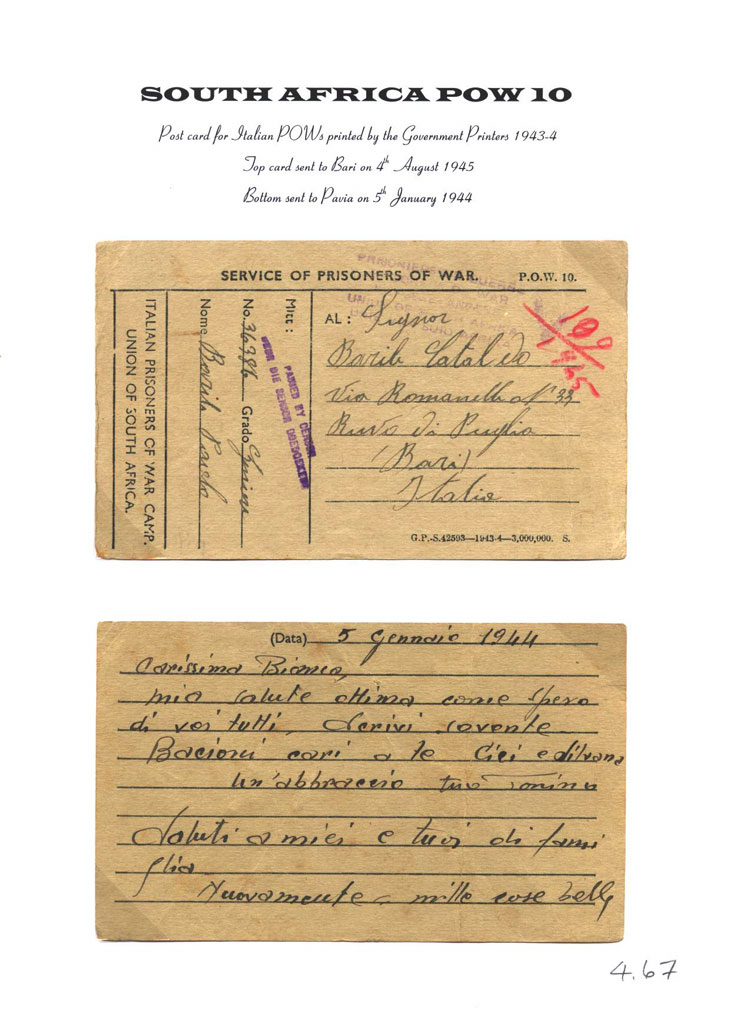 SOUTH AFRICA POW 10
Post card for Italian POWs printed by the Government Printers 1943-4
Top card sent to Bari on 4th August 1945
Bottom sent to Pavia on 5th January 1944
SERVICE OF PRISONERS OF WAR.
P.O.W. 10.
ITALIAN PRISONERS OF WAR CAMP.
UNION OF SOUTH AFRICA.
Nome Barile
No. 36386 Grado
Mitt:
PASSED BY CENSOR
DEUR DIE SENSOR GOEDGEKEUR
PRIGIONIERI DI GUERRA
OF WAR
AL: Signor
Barile Cataldo
Via Romanelli n° 33
Ruvo di Puglia
(Bari)
Italia
G.P.-S.42593—1943-4—3,000,000. S.
(Data) 5 Gennaio 1944
Carissima Bianca,
mia salute ottima come spero
di voi tutti. Scrivi sovente
Bacioni cari a te Cici e
un'abbraccio tuo
Saluti amici e tuoi di fami
glia
Nuovamente mille cose belle
4.67